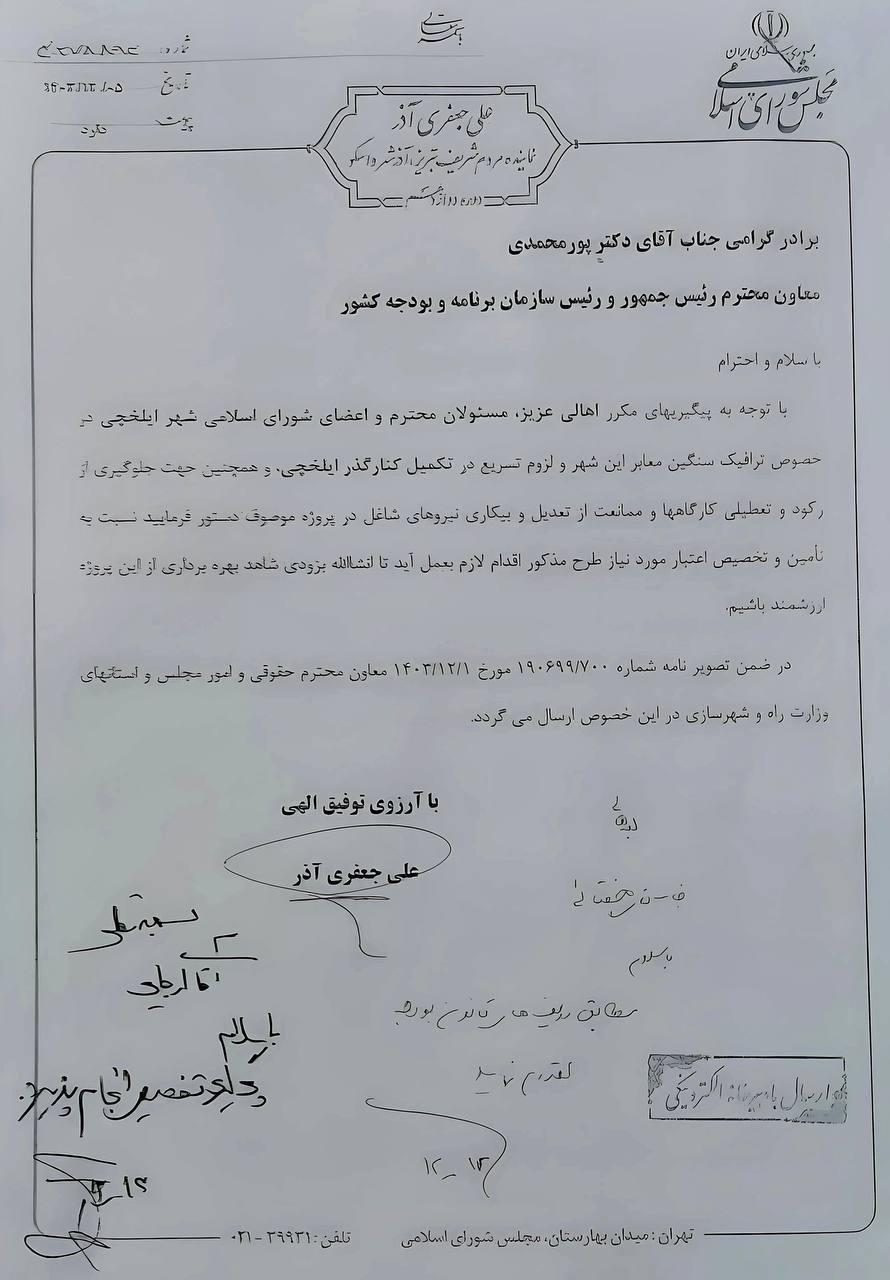 جمهوری اسلامی ایران
مجلس شورای اسلامی
شماره:
تاریخ
پیوست
ندارد
علی جعفری آذر
نماینده مردم شریف تبریز، آذرشهر و اسکو
دوره دوازدهم
برادر گرامی جناب آقای دکتر پورمحمدی
معاون محترم رئیس جمهور و رئیس سازمان برنامه و بودجه کشور
با سلام و احترام
با توجه به پیگیریهای مکرر اهالی عزیز، مسئولان محترم و اعضای شورای اسلامی شهر ایلخچی در
خصوص ترافیک سنگین معابر این شهر و لزوم تسریع در تکمیل کنارگذر ایلخچی، و همچنین جهت جلوگیری از
رکود و تعطیلی کارگاهها و ممانعت از تعدیل و بیکاری نیروهای شاغل در پروژه موصوف دستور فرمایید نسبت به
تأمین و تخصیص اعتبار مورد نیاز طرح مذکور اقدام لازم بعمل آید تا انشاالله بزودی شاهد بهره برداری از این پروژه
ارزشمند باشیم.
در ضمن تصویر نامه شماره ۱۹۰۶۹۹/۷۰۰ مورخ ۱۴۰۳/۱۲/۱ معاون محترم حقوقی و امور مجلس و استانهای
وزارت راه و شهرسازی در این خصوص ارسال می گردد.
با آرزوی توفیق الهی
علی جعفری آذر
با سلام
مطابق ردیف های قانون بودجه
اقدام نمایید
۱۲-۱۳
با سلام
تخصیص انجام پذیرد.
ارسال با دبیرخانه الکترونیکی
تهران: میدان بهارستان، مجلس شورای اسلامی
تلفن: ۳۹۹۳۱-۰۲۱